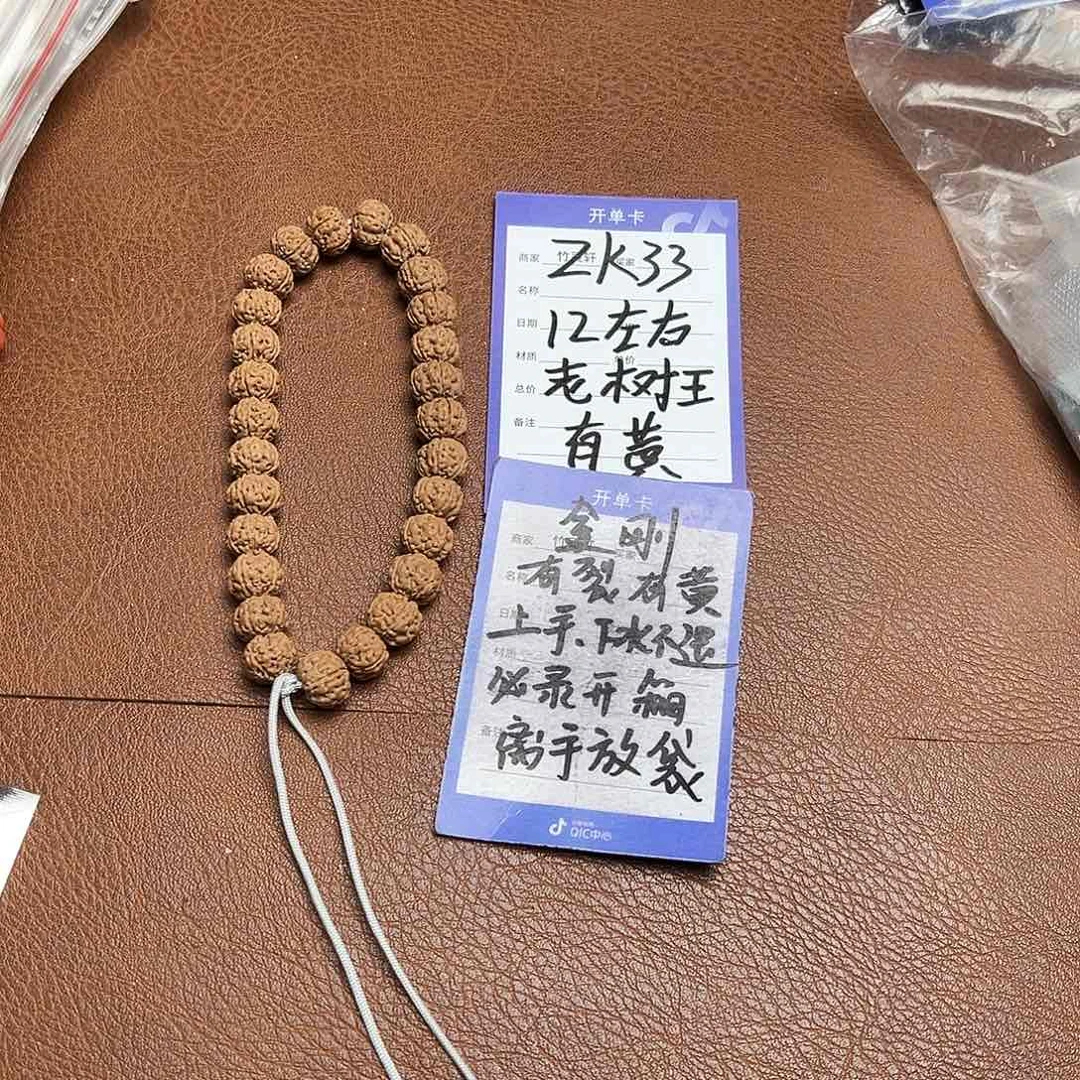 开单卡
商家 竹 轩
ZK33
名称
日期
12左右
材质
总价
老树王
备注
有黄
开单卡
商家 竹
金刚
名称
有裂有黄
日期
上手、下水不退
材质
必录开箱
备注
离手放袋
QIC中心